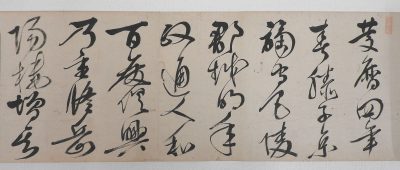 慶曆四年
春滕子京
謫守巴陵
郡越明年
政通人和
百廢俱興
乃重脩岳
陽樓增其